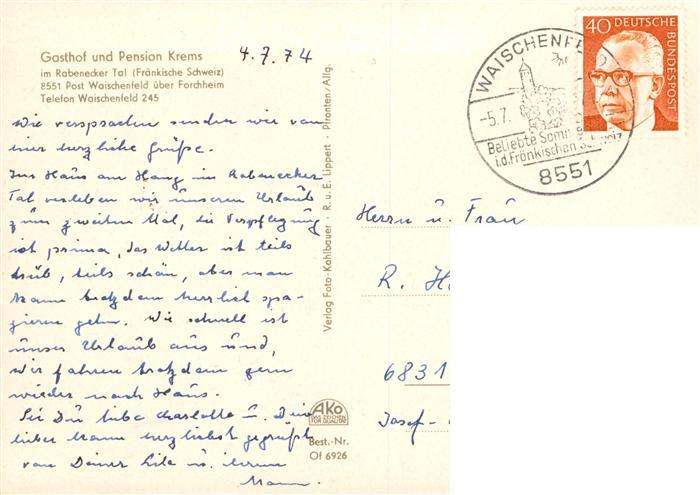 Gasthof und Pension Krems
im Rabenecker Tal (Fränkische Schweiz)
8551 Post Waischenfeld über Forchheim
Telefon Waischenfeld 245
4.7.74
Wie versprochen senden wir von
hier herzliche Grüße.
Ins Haus am Hang im Rabenecker
Tal verleben wir unseren Urlaub
zum zweiten Mal, die Verpflegung
ist prima, das Wetter ist teils
trüb, teils schön, aber man
kann trotzdem herrlich spa-
zieren gehn. Wie schnell ist
unser Urlaub aus und,
wir fahren trotzdem gern
wieder nach Haus.
Sei Du liebe Charlotte u. Dein
lieber Mann herzlichst gegrüßt
von Deiner u. ihrem
Mann.
Verlag Foto-Kahlbauer · R. u. E. Lippert · Pfronten/Allg.
AKO
DAS ZEICHEN
FÜR QUALITÄT
Best.-Nr.
Of 6926
WAISCHENFELD
-5.7.
Beliebte Somm
i.d. Fränkischen
8551
40 DEUTSCHE
BUNDESPOST
Herrn u. Frau
R. H
6831
Josef-